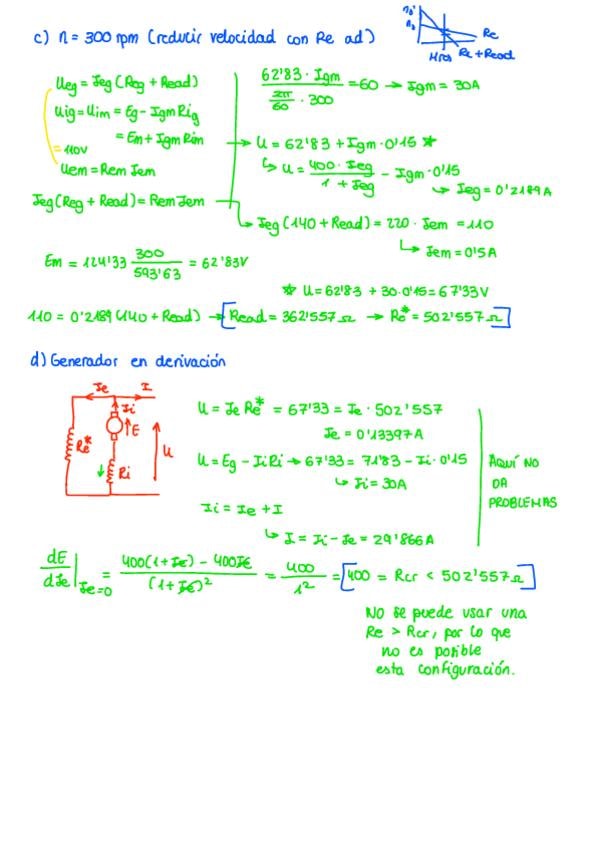 c) n = 300 rpm (reducir velocidad con Re ad)
Re
Re + Read
Mres
Ueg = Jeg (Reg + Read)
Uig = Uim = Eg - Igm Rig
= Em + Igm Rim
= 110V
Uem = Rem Jem
Jeg (Reg + Read) = Rem Jem
62'83 · Igm / (2π/60 · 300) = 60 → Igm = 30A
→ U = 62'83 + Igm · 0'15 *
↳ U = 400 · Jeg / 1 + Jeg - Igm · 0'15
↳ Jeg = 0'2189 A
↳ Jeg (140 + Read) = 220 · Jem = 110
↳ Jem = 0'5 A
Em = 124'33 300 / 593'63 = 62'83V
* U = 62'83 + 30·0'15 = 67'33V
110 = 0'2189 (140 + Read) → [Read = 362'557 Ω → Re* = 502'557 Ω]
d) Generador en derivación
Je I
Ii
E
Re*
U
Ri
U = Je Re* = 67'33 = Je · 502'557
Je = 0'13397A
U = Eg - IiRi → 67'33 = 71'83 - Ii · 0'15
↳ Ii = 30A
Ii = Ie + I
↳ I = Ii - Je = 29'866 A
AQUÍ NO
DA
PROBLEMAS
dE / dJe | Je=0 = 400(1+Je) - 400Je / (1+Je)² = 400 / 1² = [400 = Rcr < 502'557 Ω]
No se puede usar una
Re > Rcr, por lo que
no es posible
esta configuración.